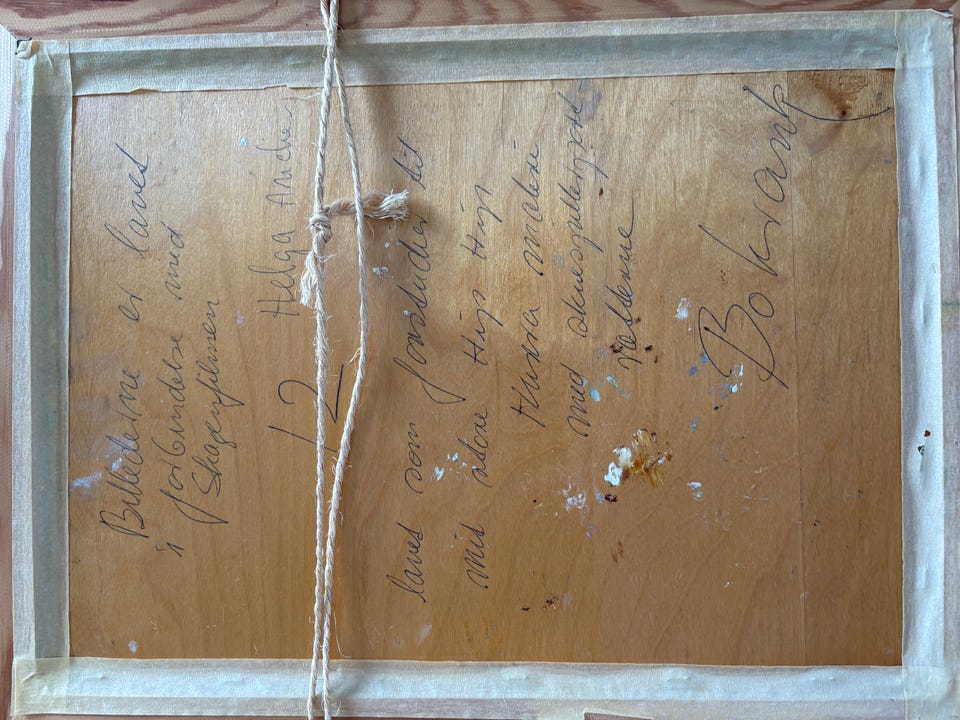 Billederne er lavet
i forbindelse med
Skagenfilmen
12 Helga Ancher
lavet som forstudier til
mit store Hip Hip
Hurra maleri
med skuespillerportrætterne
Bo Krantz